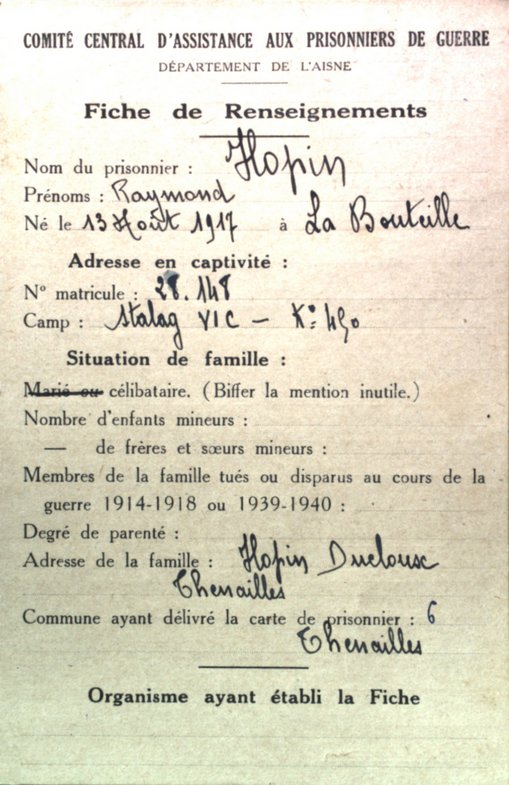 COMITÉ CENTRAL D'ASSISTANCE AUX PRISONNIERS DE GUERRE
DÉPARTEMENT DE L'AISNE
Fiche de Renseignements
Nom du prisonnier : Hopin
Prénoms : Raymond
Né le 13 Août 1917 à La Bouteille
Adresse en captivité :
N° matricule : 28.148
Camp : Stalag VIC – K° 490
Situation de famille :
Marié ou célibataire. (Biffer la mention inutile.)
Nombre d'enfants mineurs :
— de frères et sœurs mineurs :
Membres de la famille tués ou disparus au cours de la
guerre 1914-1918 ou 1939-1940 :
Degré de parenté :
Adresse de la famille : Hopin Ducloux
Thenailles
Commune ayant délivré la carte de prisonnier : 6
Thenailles
Organisme ayant établi la Fiche